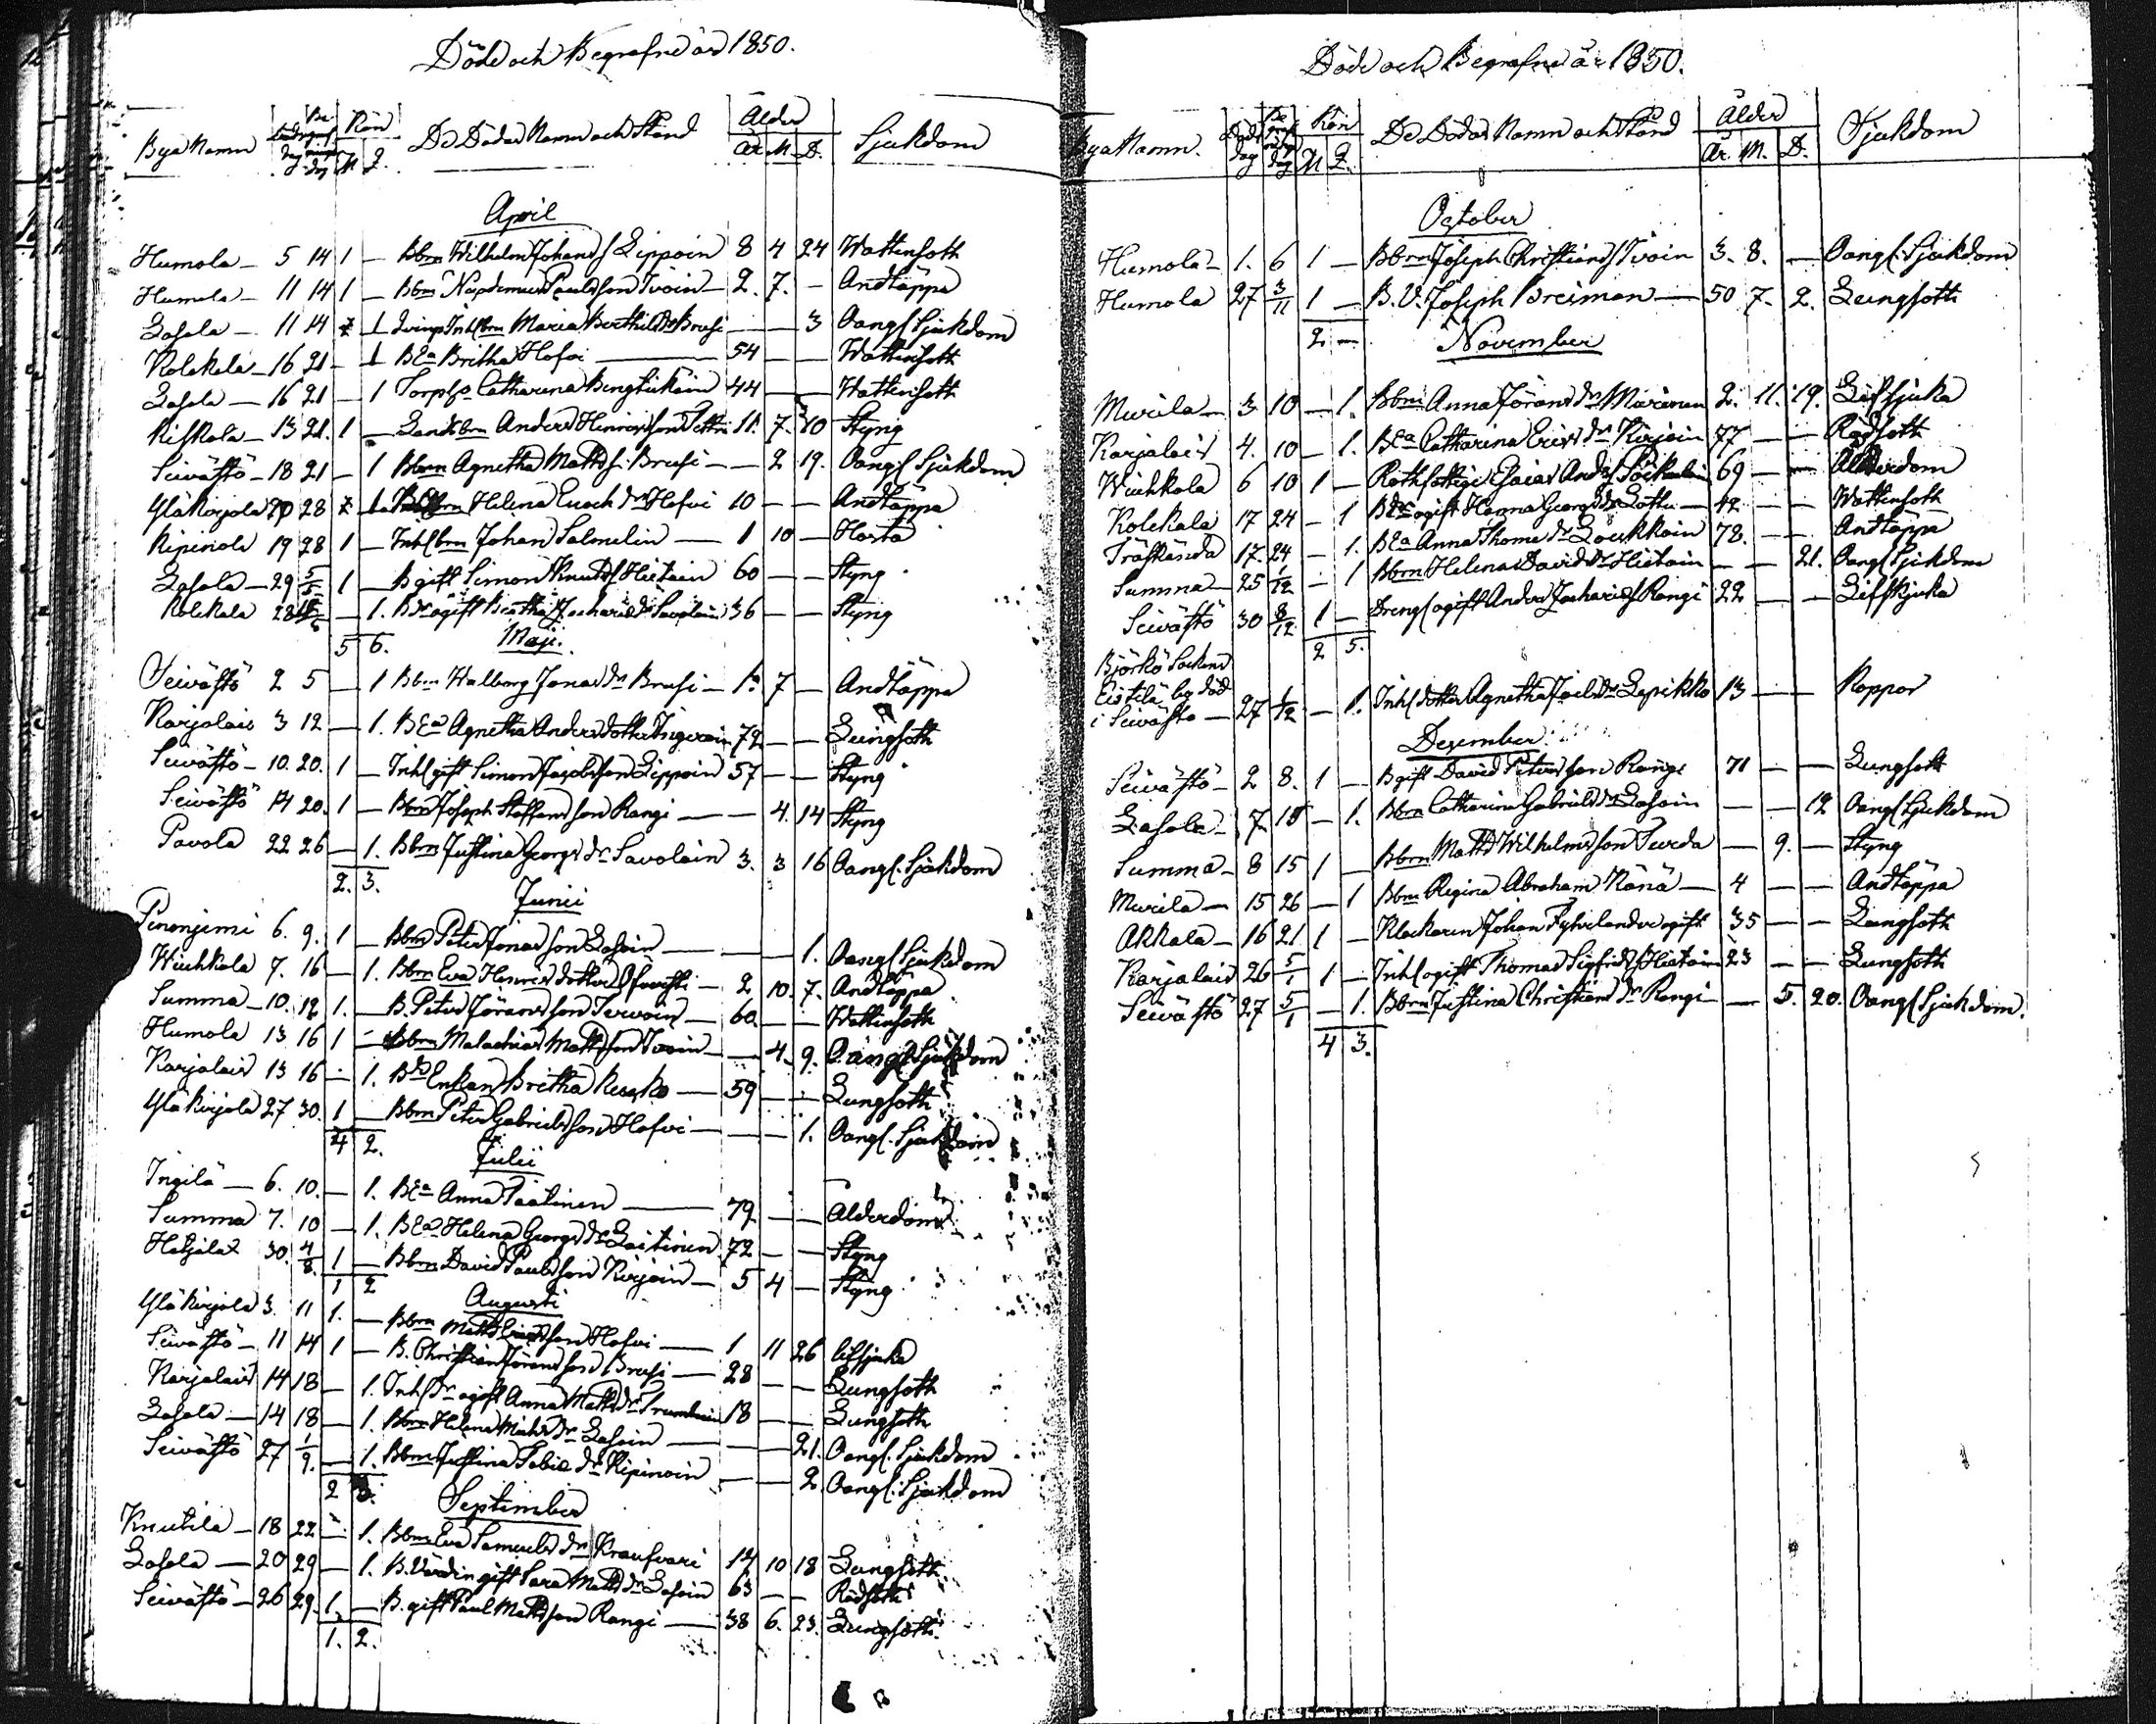 Döde och Begrafne år 1850.
Bya Namn Döds dag Be grafnings dag Kön M Q. De Dödas Namn och Stånd Ålder År M. D. Sjukdom
April
Humola 5 14 1 — Bbrn Wilhelm Johans s Lippoin 8 4 24 Wattensoth
Humola 11 14 1 — Bbrn Paulsson Ivoin 2. 7. — Andtäppa
Lasola 11 14 1 Maria Berthils Dr Brusi — — 3 Oangf Sjukdom
Kolckala 16 21 — 1 BEa Britha Hofvi 54 — — Wattensoth
Lasola 16 21 — 1 Catharina 44 — — Wattensoth
Kiskola 13 21. 1 — Anders Henricsson 11. 7. 10 Styng
Seivästö 18 21 — 1 Bbrn Agnetha Matts Brusi — 2 19. Oangf Sjukdom
Yläkirjola 20 28 1 Helena Enoch dr Hofvi 10 — — Andtäppa
Kipinola 19 28 1 — Inhs brn Johan Salmelin 1 10 — Hosta
Lasola 29 5/5 1 — B gift Simon Knuts s Hietain 60 — — Styng
Kolckala 28 — 1. B dr ogift Beatha Zacharis dr Savolain 36 — — Styng
5 6.
Maji.
Seivästö 2 5 — 1 Bbrn Walborg Jonas dr Brusi 1. 7 — Andtäppa
Karjalais 3 12 — 1. BEa Agnetha Anders dotter Ingeroin 72 — — Lungsoth
Seivästö 10. 20. 1 — Inhs gift Simon Jacobsson Lippoin 57 — — Styng
Seivästö 14 20. 1 — Bbrn Joseph Staffansson Rangi — 4. 14 Styng
Pavola 22 26 — 1. Bbrn Justina Georgs dr Savolain 3. 3 16 Oangf. Sjukdom
2. 3.
Junii
Penonjemi 6. 9. 1 — Bbrn Peter Jonasson Lasoin — — 1. Oangf Sjukdom
Wiuhkola 7. 16 — 1. Bbrn Eva Henrics dotter 2 10. 7. Andtäppa
Summa 10. 12 1. — B. Peter Jöransson Tervoin 60 — — Wattensoth
Humola 13 16 1 — Bbrn Malachias Mattsson Ivoin — 4. 9. Oangf Sjukdom
Karjalais 13 16 — 1. Bds Enkan Britha Kuusko 59 — — Lungsoth
Yläkirjola 27 30. 1 — Bbrn Peter Gabrielsson Hofvi — — 1. Oangf. Sjukdom
4 2.
Julii
Ingilä 6. 10. — 1. BEa Anna Paatinen 79 — — Ålderdom
Summa 7. 10 — 1. BEa Helena Georgs dr Laitinen 72 — — Styng
30. 4/8. 1 — Bbrn David Paulsson Kirjoin 5 4 — Styng
1 2
Augusti
Yläkirjola 3. 11 1. — Bbrn Matts Hofvi 1 11 26 lifsjuka
Seivästö 11 14 1 — B. Christian Jöransson Brusi 28 — — Lungsoth
Karjalais 14 18 — 1. Inhs dr ogift Anna Matts dr 18 — — Lungsoth
Lasola 14 18 — 1. Bbrn Helena dr Lasoin — — 21. Oangf. Sjukdom
Seivästö 27 1/9. — 1. Bbrn Justina Tobias dr Kipinoin — — 2. Oangf. Sjukdom
2 3.
September
Knutila 18 22 — 1. Bbrn Eva Samuels dr 14 10 18 Lungsoth
Lasola 20 29 — 1. B. Värdin gift Sara Matts dr Lasoin 63 — — Rödsoth
Seivästö 26 29. 1 — B. gift Paul Mattsson Rangi 38 6. 23. Lungsoth.
1. 2.
Döde och Begrafne år 1850.
Bya Namn. Döds dag Be grafnings dag Kön M Q. De Dödas Namn och Stånd Ålder År. M. D. Sjukdom
October
Humola 1. 6 1 — Bbrn Joseph Christians s Ivoin 3. 8. — Oangf. Sjukdom
Humola 27 3/11 1 — B. V. Joseph Breiman 50 7. 2. Lungsoth
2 —
November
Murila 3 10 — 1. Bbrn Anna Jörans dr Märinen 2. 11. 19. Lifsjuka
Karjalais 4. 10 — 1. BEa Catharina Erics dr Kirjoin 77 — — Rödsoth
Wiuhkola 6 10 1 — Rothfattige Esaias Anders s 69 — — Ålderdom
Kolckala 17 24 — 1 B dr ogift Hanna Georgs dr Lottu 42 — — Wattensoth
Träskända 17. 24 — 1. BEa Anna Thomas dr Loukkoin 72. — — Andtäppa
Summa 25 1/12 — 1 Bbrn Helena Davids dr Hietain — — 21. Oangf Sjukdom
Seivästö 30 8/12. 1 — Drengs ogift Anders Zacharis s Rangi 22 — — Lifsjuka
2 5.
Björkö Sockens
Eistilä by död
i Seivästö 27 1/12 — 1. Inhs dotter Agnetha Joels dr Lepikko 13 — — Koppor
December
Seivästö 2 8. 1 — B gift David Petersson Rangi 71 — — Lungsoth
Lasola 7. 15 — 1. Bbrn Catharina Gabriels dr Lasoin — — 12 Oangf Sjukdom
Summa 8 15 1 — Bbrn Matts Wilhelmsson Turda — 9. — Styng
Murila 15 26 — 1 Bbrn Regina Abraham Känä 4 — — Andtäppa
Akkala 16 21 1 — Klockaren Johan Fythelander ogift 35 — — Lungsoth
Karjalais 26 5/1 1 — Inhs ogift Thomas Sigfrids s Hietain 23 — — Lungsoth
Seivästö 27 5/1 — 1. Bbrn Justina Christians dr Rangi — 5. 20. Oangf Sjukdom.
4 3.